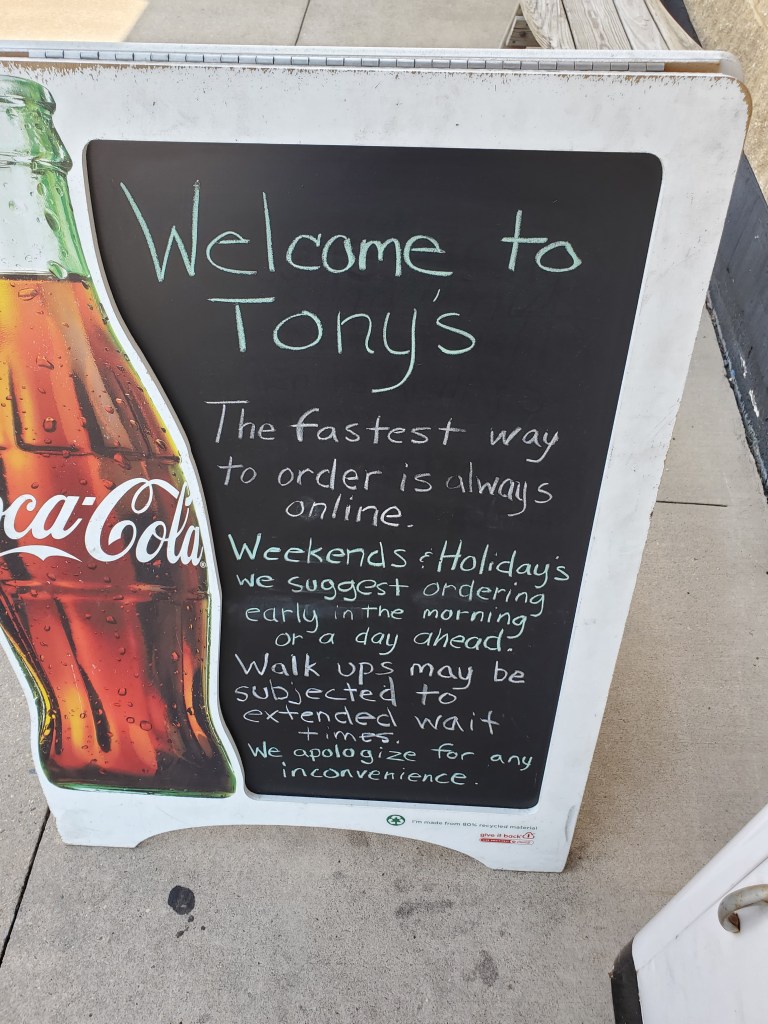 Welcome to
Tony's
The fastest way
to order is always
online.
Weekends & Holiday's
we suggest ordering
early in the morning
or a day ahead.
Walk ups may be
subjected to
extended wait
times.
We apologize for any
inconvenience.
ca-Cola
I'm made from 90% recycled material
give it back